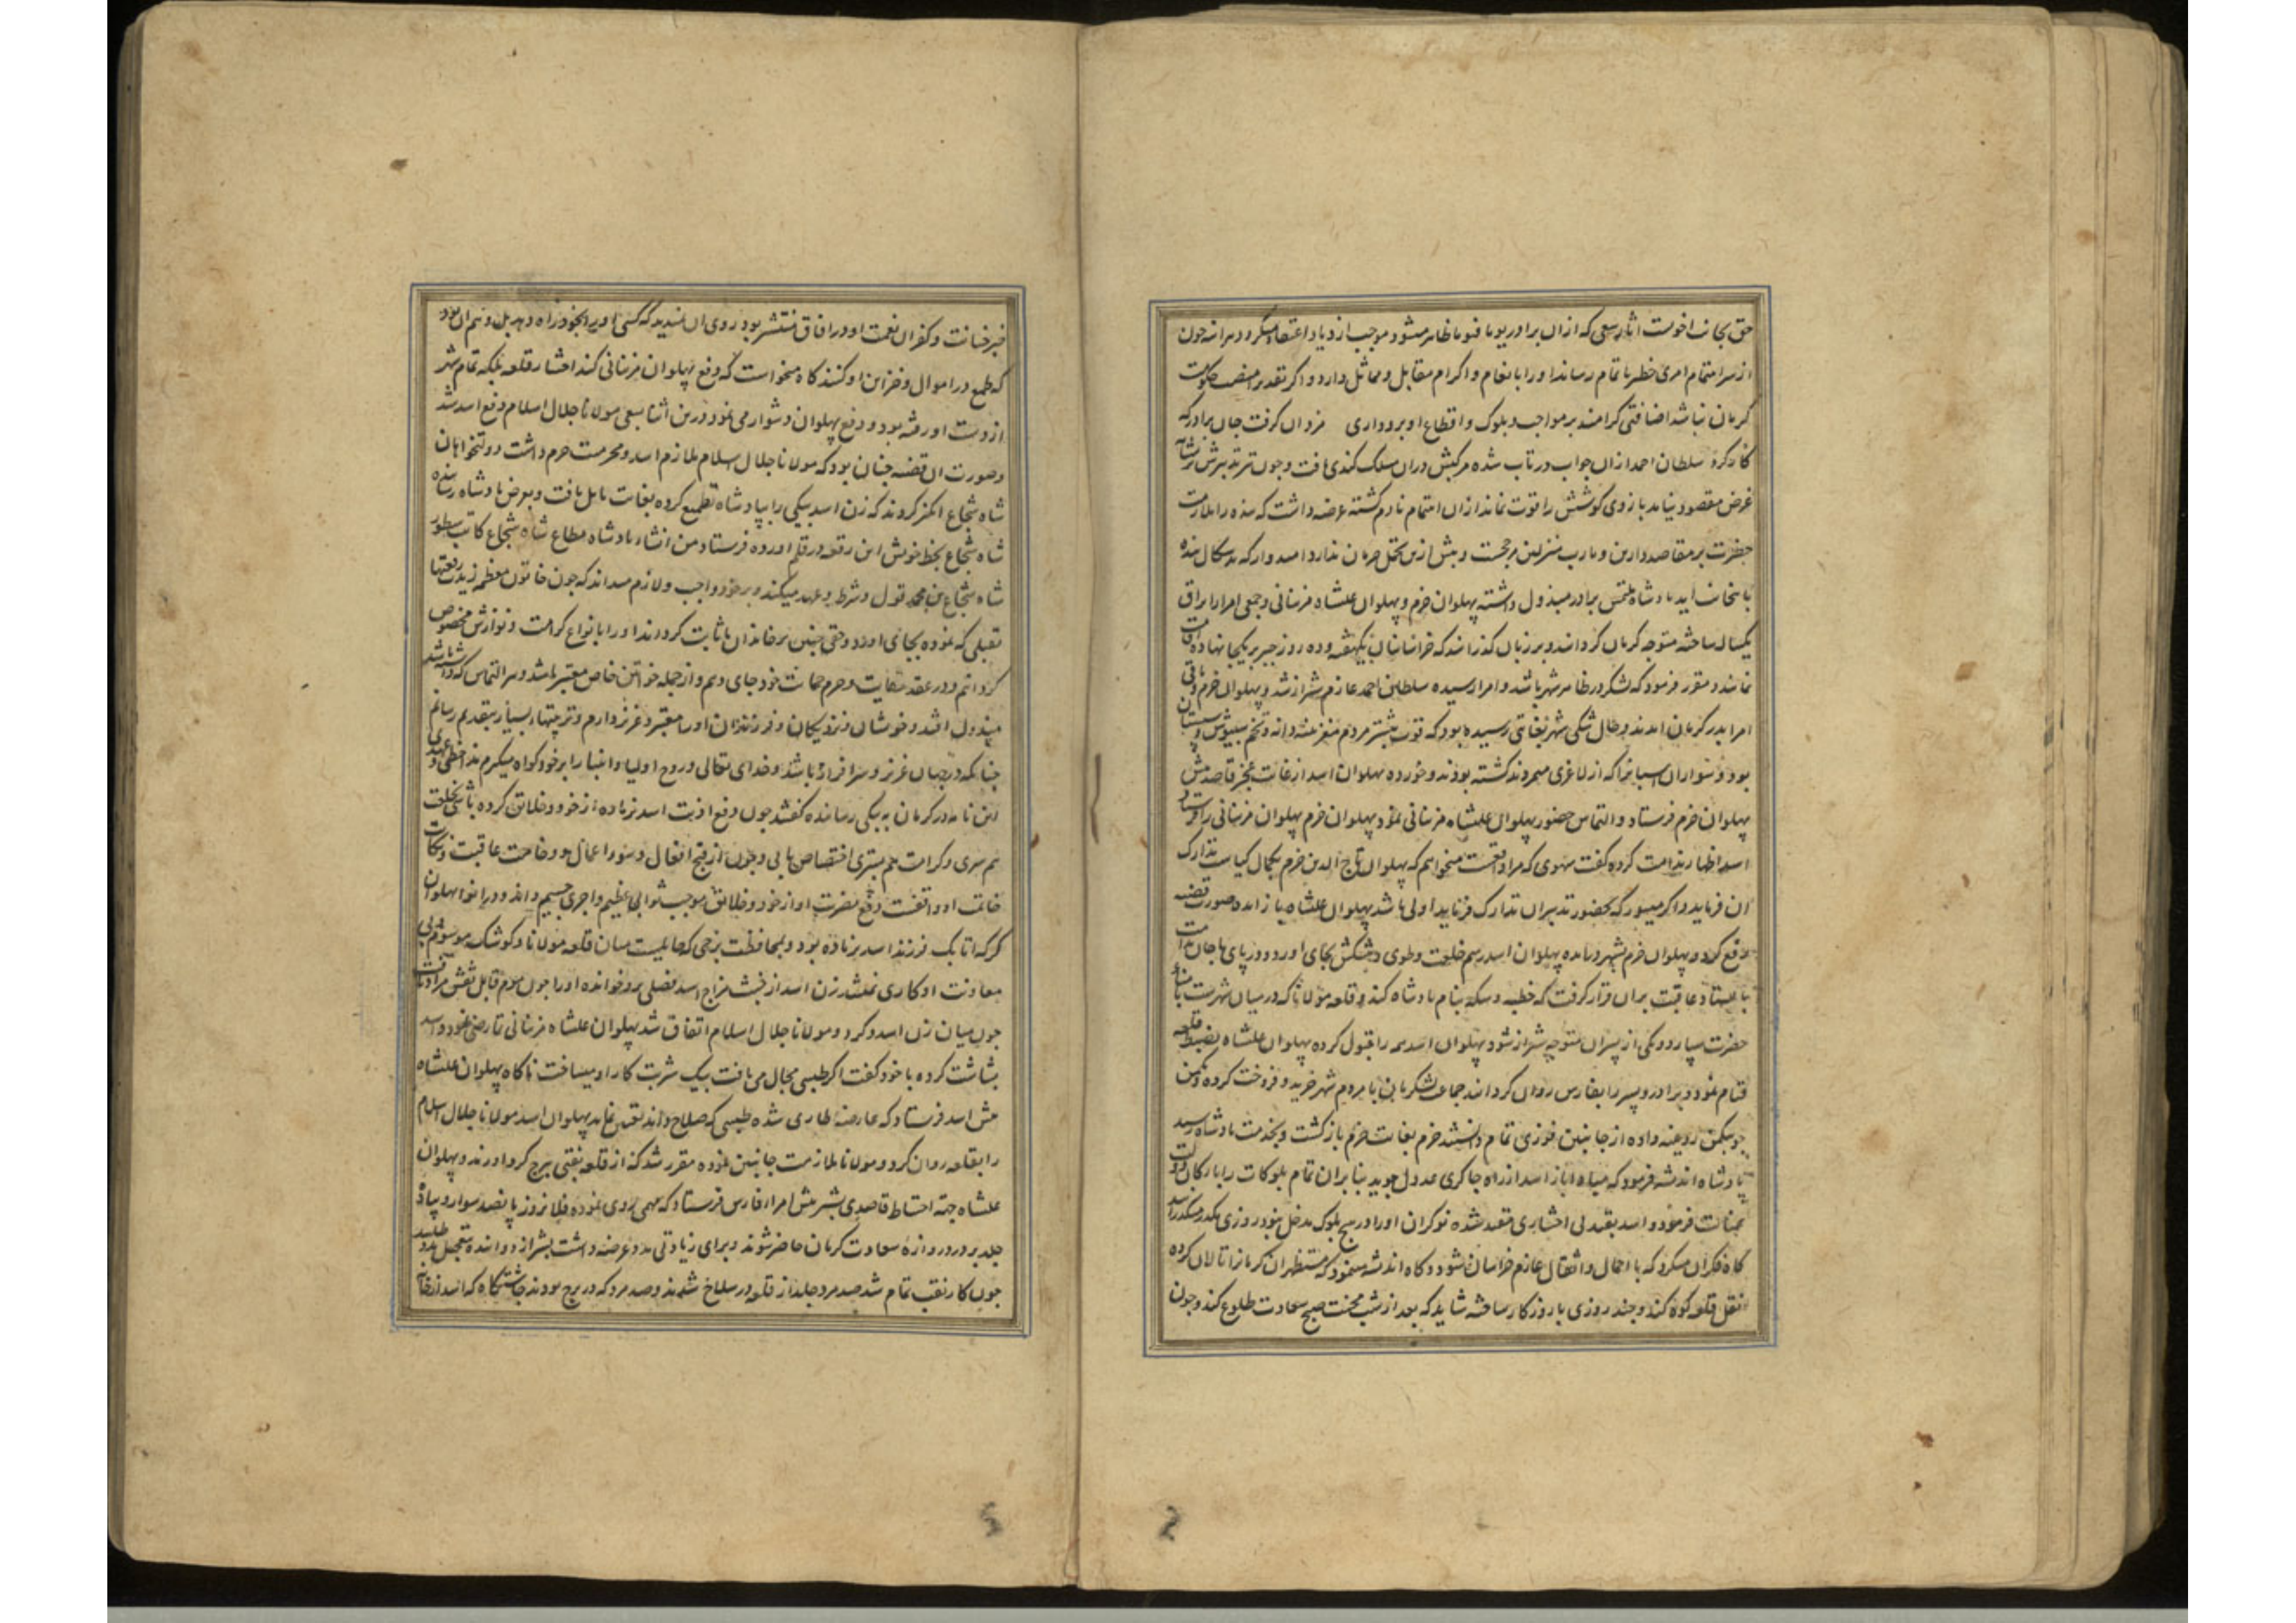 حق بجانب اخوت اثار سعی که ازان برادر یوما فیوما ظاهر میشود موجب ازدیاد اعتضاد میکردد هرانه چون
از سرا متمام امری خطیر باتمام رساند اورا بانعام واکرام مقابل ومماثل دارد واکر تقدیرا منصب حکومت
کرمان نباشد اضافتی کرامند بر مواجب وبلوک واقطاع او برود اری مزدان کرفت جان برادر که
کار کرد سلطان احمد ازان جواب در تاب شده مرکبش دران مسلک کندی یافت وچون تیر تدبیرش بر نشانه
غرض مقصود نیامد بازوی کوشش را قوت نماند ازان اهتمام نادم کشته عرضه داشت که بنده را ملازمت
حضرت بر مقاصد دارین ومارب منزلین مرجحست وبیش ازین تحمل حرمان ندارد امیدوار که بدسکال بنده
بامتحان اید پادشاه ملتمس برادر مبذول داشته پهلوان خرم وپهلوان علیشاه مزینانی وجمعی امرا را یراق
یکسال ساخته متوجه کرمان کردانید وبر زبان کذرانید که خراسانیان بیکهفته وده روز جیر بریکجا نهاده اقامت
نمایند ومقرر فرمود که لشکر در ظاهر شهر باشد وامرا رسیده سلطان احمد عازم شیراز شد وپهلوان خرم وباقی
امرا بدر کرمان امدند وحال تنکی شهر بغایتی رسیده بود که قوت بیشتر مردم مغز پنبه دانه وتخم سپیوش وسپستان
بود وسواران اسبانرا که از لاغری میمردند کشته بودند وخورده پهلوان اسد از غایت عجز قاصد پیش
پهلوان خرم فرستاد والتماس حضور پهلوان علیشاه مزینانی نمود پهلوان خرم پهلوان مزینانی را فرستاد
اسد اظهار ندامت کرده کفت سهوی که مرا واقعست میخواهم که پهلوان تاج الدین خرم بکمال کیاست تدارک
ان فرماید واکر میسور که بحضور تدبیران تدارک فرماید اولی باشد پهلوان علیشاه باز امد وصورت قضیه
رفع کرد وپهلوان خرم بشهر درامده پهلوان اسد رسم خلعت وطوی وپیشکش بجای اورد ودر پای ماجان ندامت
بایستاد عاقبت بران قرار کرفت که خطبه وسکه بنام پادشاه کند وقلعه مولانا که درمیان شهرست بنام
حضرت سپارد ویکی از پسران متوجه شیراز شود پهلوان اسد همه را قبول کرده پهلوان علیشاه بضبط قلعه
قیام نمود وبرادر وپسر را بفارس روان کردانید جماعت لشکریان با مردم شهر خرید وفروخت کرده
داده از جانبین فوزی تمام دانستند خرم بغایت خرم بازکشت وبخدمت پادشاه رسید
پادشاه اندیشه فرمود که مبادا باز اسد از راه چاکری عدول جوید بنابران تمام بلوکات را بارکان دولت
عنایت فرمود واسد بقید بی اختیاری مقید شده نوکران اورا در هیچ بلوک مدخل نبود روزی بکدر میکذرانید
کاه فکر ان میکرد که با احمال واثقال عازم خراسان شود وکاه اندیشه مینمود که مستظهران کرمانرا تالان کرده
نقل قلعه کوه کند وچند روزی با روزکار ساخته شاید که بعد از شب محنت صبح سعادت طلوع کند وچون
خبر خیانت وکفران نعمت او در افاق منتشر بود روی ان ندید که کسی اورا بخود راه دهد بل وهم ان بود
که طمع در اموال وخزاین او کنند کاه میخواست که دفع پهلوان مزینانی کند اختیار قلعه بلکه تمام شهر
از دست او رفته بود ودفع پهلوان دشوار می نمود درین اثنا بسعی مولانا جلال اسلام دفع اسد شد
وصورت ان قضیه چنان بود که مولانا جلال اسلام ملازم اسد ومحرمیت حرم داشت دولتخواهان
شاه شجاع انکیز کردند که زن اسد بیکی را بپادشاه تطمیع کرده بغایت مایل یافت وبعرض پادشاه رسانیده
شاه شجاع بخط خویش این رقعه در قلم اورده فرستاد من انشاء پادشاه مطاع شاه شجاع کاتب سطور
شاه شجاع بن محمد قول وشرط وعهد میکند وبر خود واجب ولازم میداند که چون خاتون معظمه زیدت رفعتها
تقبلی که نموده بجای اورد وحقی چنین بر خاندان ما ثابت کرداند اورا بانواع کرامت ونوازش مخصوص
کردانم ودر عقد نکایت وحرم حمایت خود جای دهم واز جمله خواتین خاص معتبر باشد وهر التماس که داشته باشد
مبذول افتد وخویشان ونزدیکان وفرزندان اورا معتبر وعزیز دارم وتربیتهاء بسیار بتقدیم رسانم
چنانکه در جهان عزیز وسرافراز باشد وخدای تعالی وروح اولیا وانبیا را بر خود کواه میکرم
این نامه در کرمان به بیکی رسانیده کفتند چون دفع اذیت اسد بزیاده از خود وخلایق کرده باشی بخلعت
هم سری وکرامت هم بستری اختصاص یابی وچون از قبح افعال وسوء اعمال ووخامت عاقبت ونکایت
خاتمت او واقفست دفع مضرت او از خود وخلایق موجب ثوابی عظیم واجری جسیم داند ودران نوا پهلوان
کرکه اتابک فرزند اسد بزیاده بود وبمحافظت برجی که حایلیست میان قلعه مولانا وکوشک موسوم بی
معاونت او کاری نمیشد زن اسد از خبث مزاج اسد فصلی برو خوانده اورا چون موم قابل نقش مراد یافت
چون میان زن اسد وکرد ومولانا جلال اسلام اتفاق شد پهلوان علیشاه مزینانی تمارض نمود واسد
بشاشت کرده با خود کفت اکر طبیبی مجال می یافت بیک شربت کار او میساخت ناکاه پهلوان علیشاه
پیش اسد فرستاد که عارضه طاری شده طبیبی که صلاح داند تعیین نماید پهلوان اسد مولانا جلال اسلام
را بقلعه روان کرد ومولانا ملازمت جانبین نموده مقرر شد که از قلعه نقبی ببرج کرد اورند وپهلوان
علیشاه جهة احتیاط قاصدی بشیر پیش امراء فارس فرستاد که مهمی روی نموده فلان روز پانصد سوار وپیاده
جلد بر در دروازه سعادت کرمان حاضر شوند وبرای زیادتی مدد عرضه داشت بشیراز دوانیده بتعجیل مدد طلبید
چون کار نقب تمام شد صد مرد جلد از قلعه در سلاخ شدند وصد مرد که در برج بودند چاشتکاه که اسد از خانه